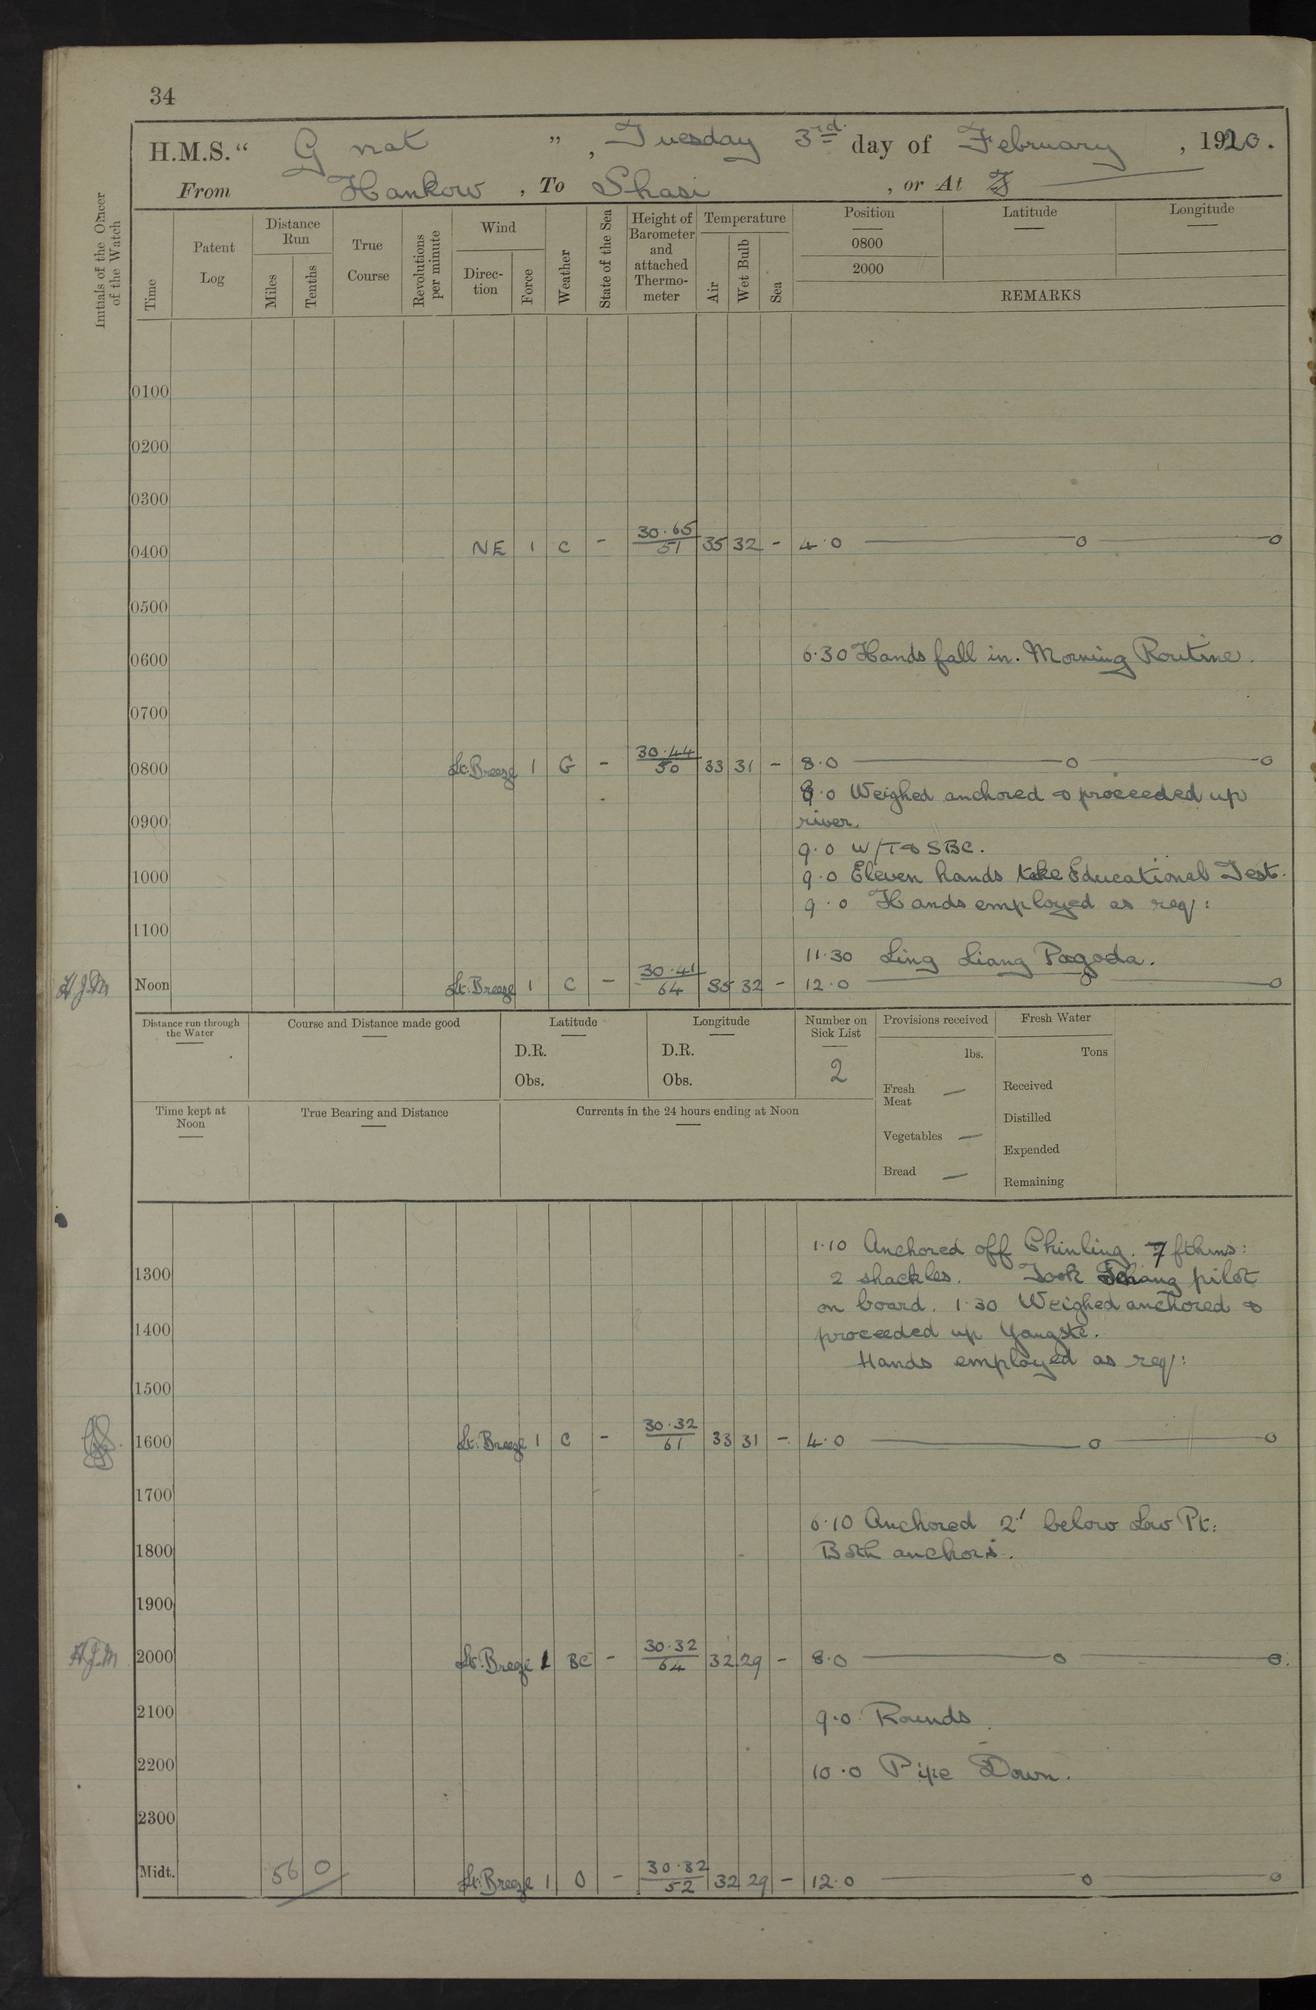 34
H.M.S. “ Gnat ” , Tuesday 3rd day of February , 1920.
From Hankow , To Shasi , or At
Initials of the Officer of the Watch
Time
Patent Log
Distance Run
Miles
Tenths
True Course
Revolutions per minute
Wind
Direc-tion
Force
Weather
State of the Sea
Height of Barometer and attached Thermo-meter
Temperature
Air
Wet Bulb
Sea
Position
Latitude
Longitude
0800
2000
REMARKS
0100
0200
0300
0400 NE 1 C - 30.65/51 35 32 - 4.0 —— o —— o
0500
0600 6.30 Hands fall in. Morning Routine.
0700
0800 Lt. Breeze 1 G - 30.44/50 33 31 - 8.0 —— o —— o
8.0 Weighed anchored & proceeded up
0900 river.
9.0 W/T & SBC.
1000 9.0 Eleven hands take Educational Test.
9.0 Hands employed as req:
1100
11.30 Ling Liang Pagoda.
HJM Noon Lt. Breeze 1 C - 30.41/64 35 32 - 12.0 —— o —— o
Distance run through the Water
Course and Distance made good
Latitude
D.R.
Obs.
Longitude
D.R.
Obs.
Number on Sick List
2
Provisions received
lbs.
Fresh Meat —
Vegetables —
Bread —
Fresh Water
Tons
Received
Distilled
Expended
Remaining
Time kept at Noon
True Bearing and Distance
Currents in the 24 hours ending at Noon
1.10 Anchored off Chinling. 7 fthms:
1300 2 shackles. Took pilot
on board. 1.30 Weighed anchored &
1400 proceeded up Yangste.
Hands employed as req:
1500
1600 Lt. Breeze 1 C - 30.32/61 33 31 - 4.0 —— o —— o
1700
6.10 Anchored 2' below Low Pt:
1800 Both anchors.
1900
HJM 2000 Lt. Breeze 1 BC - 30.32/64 32 29 - 8.0 —— o —— o
2100 9.0 Rounds.
2200 10.0 Pipe Down.
2300
Midt. 56 0 Lt. Breeze 1 O - 30.32/52 32 29 - 12.0 —— o —— o